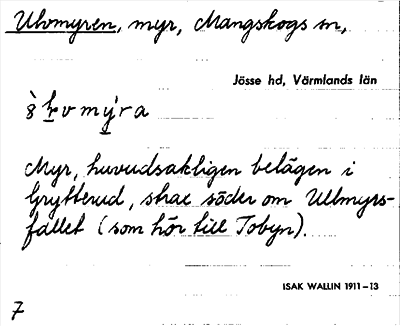 Ulvmyren, myr, Mangskogs sn,
Jösse hd, Värmlands län
Myr, huvudsakligen belägen i
Grytterud, strax söder om Ullmyrs-
fallet (som hör till Tobyn).
ISAK WALLIN 1911–13
7